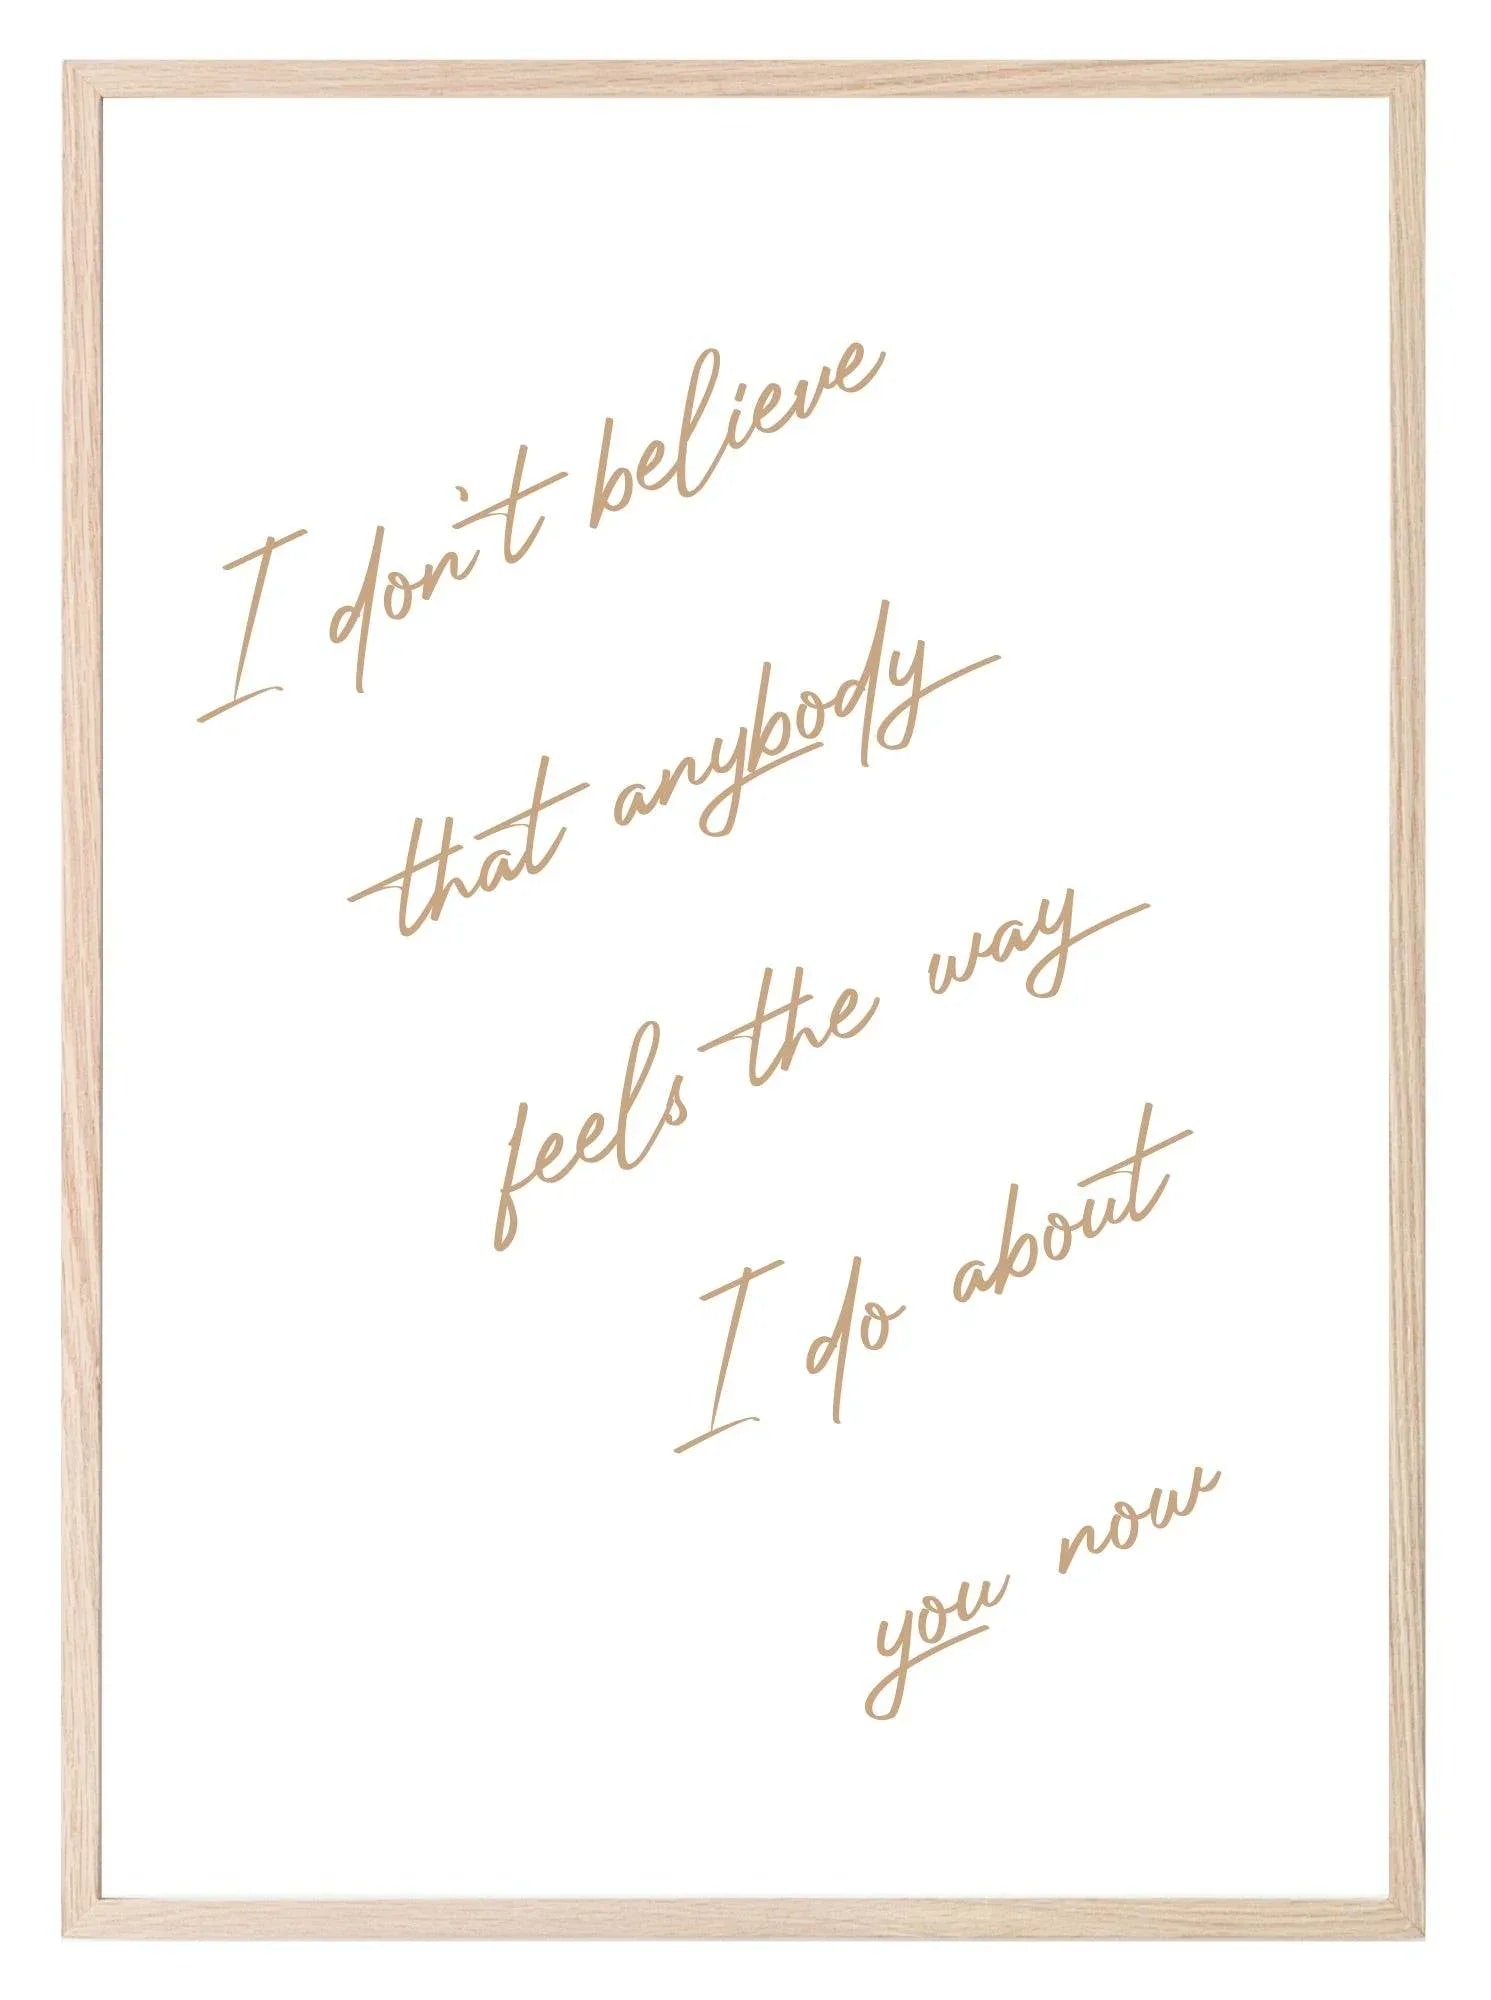 I don't believe
that anybody
feels the way
I do about
you now